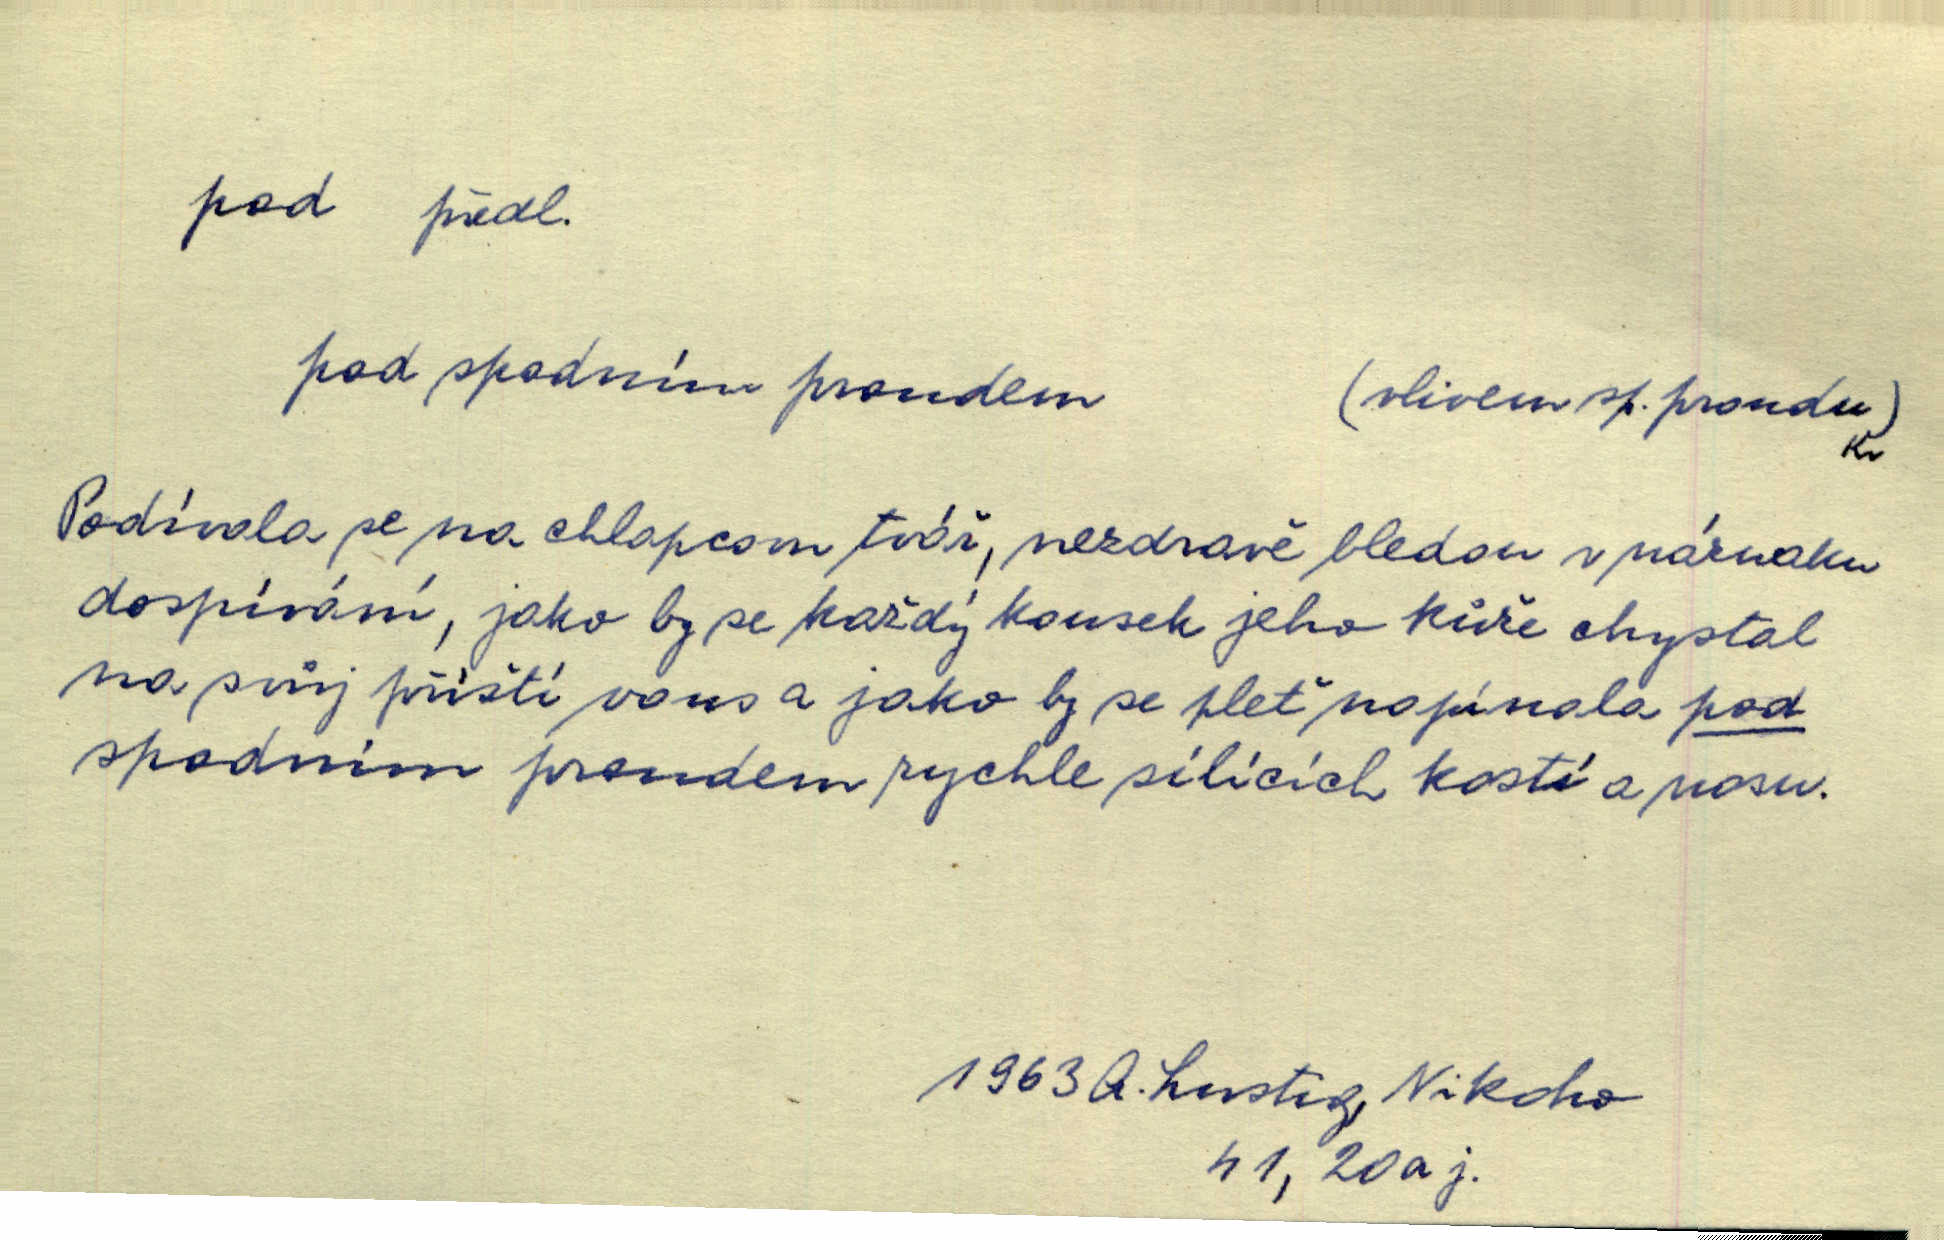 pod předl.
pod spodním proudem (vlivem sp. proudu)
Kr
Podívala se na chlapcovu tvář, nezdravě bledou v náznaku
dospívání, jako by se každý kousek jeho kůže chystal
na svůj příští vous a jako by se pleť napínala pod
spodním proudem rychle sílících kostí a nosu.
1963 A. Lustig, Nikoho
41, 20 a j.